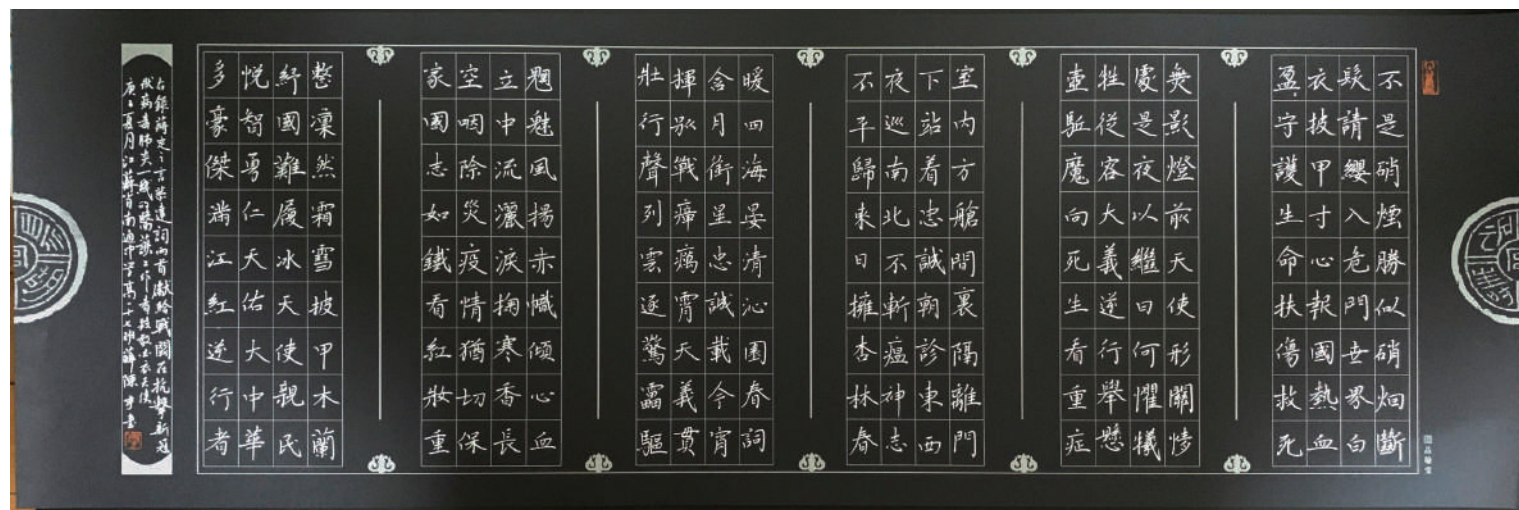 不是硝煙勝似硝烟斷
髮請纓入危門世界白
衣披甲寸心報國熱血
盈守護生命扶傷救死
無影燈前天使形關
處是夜以繼日何懼犧
牲從容大義逆行舉懸
壺駈魔向死生看重症
室內方艙間裏隔離門
下站着忠誠朝診東西
夜巡南北不斬瘟神志
不平歸來日擁杏林春
暖四海晏清沁園春詞
含月銜星忠誠載今宵
揮戰瘴癘霄天義貫
壯行聲列雲逐驚靁驅
魍魅風揚赤幟傾心血
立中流灑淚掬寒香長
空咽除災疫情猶切保
家國志如鐵看紅妝重
整凜然霜雪披甲木蘭
紓國難履冰天使親民
悅智勇仁天佑大中華
多豪傑滿江紅逆行者
右錄蔣定之言恭達詞兩首獻給戰鬬在抗擊新冠
狀病毒肺炎一綫的醫務工作者致敬白衣天使
庚子夏月江蘇省南通中學高一十七班薛陳宇書